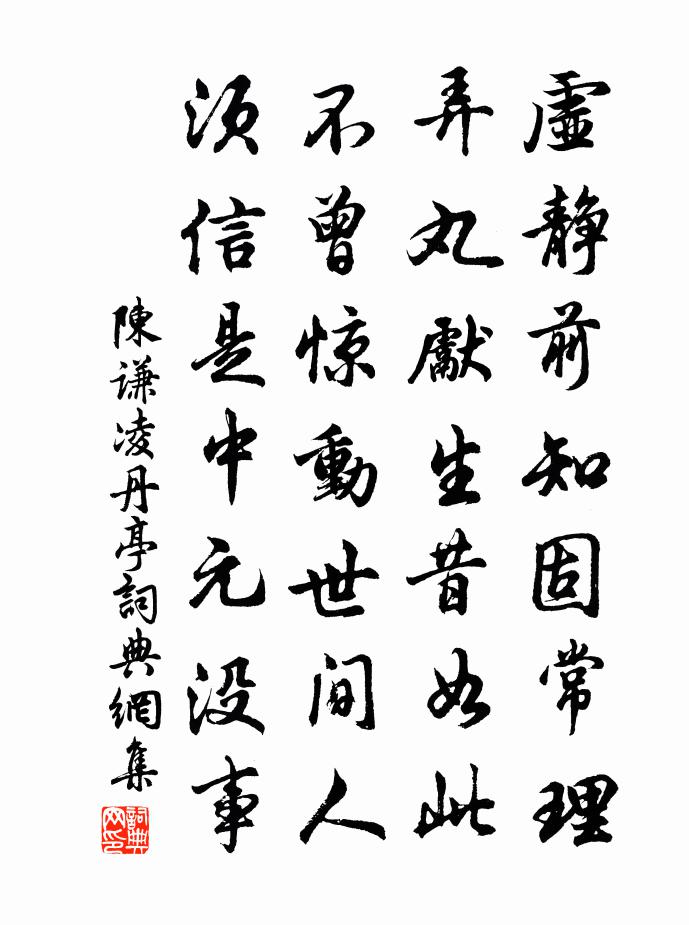 虛靜前知固常理
弄丸獻生昔如此
不曾惊動世間人
須信是中元没事
陳謙凌丹亭詞典網集
詞典网印